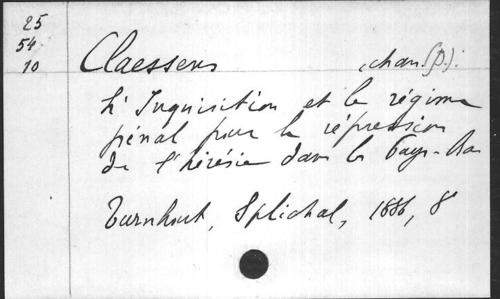 25
54
10
Claessens, chan. (P.).
L'Inquisition et le régime
pénal pour la répression
de l'hérésie dans les Pays-Bas
Turnhout, Splichal, 1886, 8°